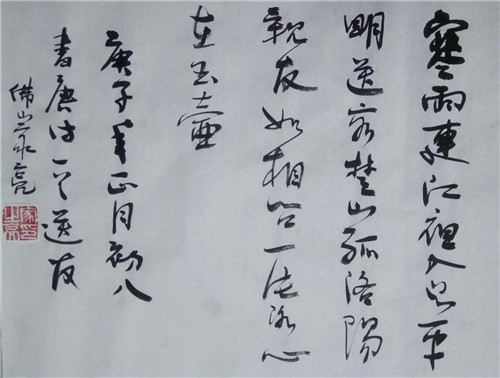 寒雨連江夜入吴平
明送客楚山孤洛陽
親友如相问一片冰心
在玉壶
庚子年正月初八
書唐诗一首送友
佛山家亮